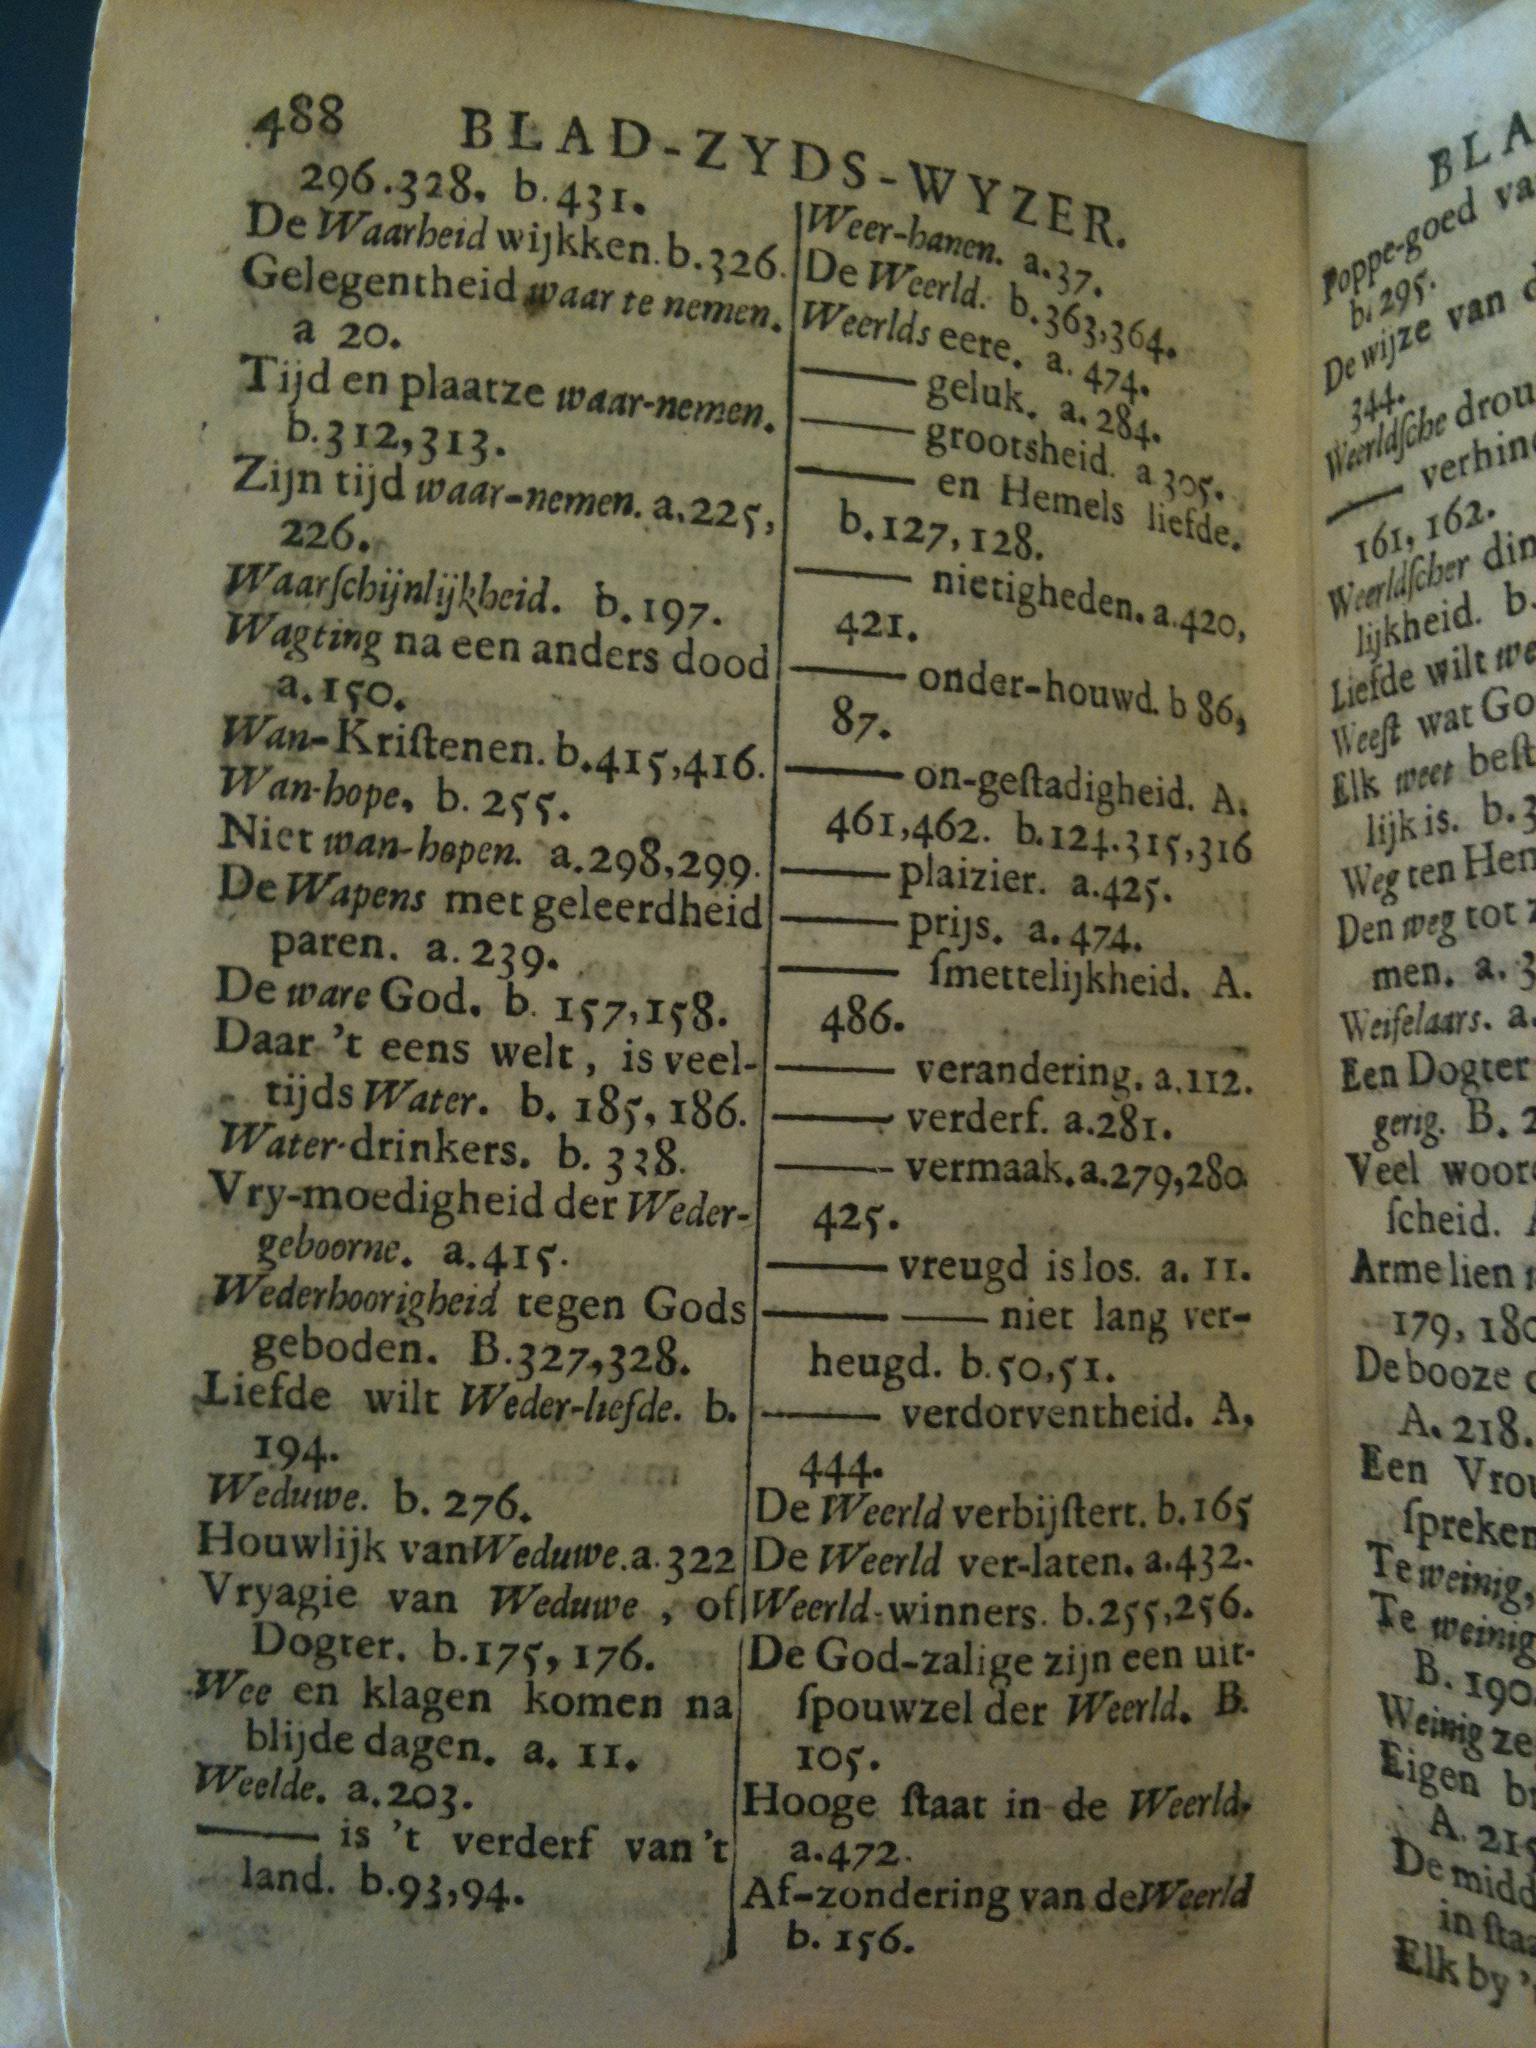 488 BLAD-ZYDS-WYZER.
296.328. b.431.
De Waarheid wijkken. b.326.
Gelegentheid waar te nemen.
a 20.
Tijd en plaatze waar-nemen.
b.312,313.
Zijn tijd waar-nemen. a.225,
226.
Waarſchijnlijkheid. b.197.
Wagting na een anders dood
a.150.
Wan-Kriſtenen. b.415,416.
Wan-hope. b. 255.
Niet wan-hopen. a.298,299.
De Wapens met geleerdheid
paren. a.239.
De ware God. b. 157,158.
Daar 't eens welt, is veel-
tijds Water. b. 185,186.
Water-drinkers. b. 338.
Vry-moedigheid der Weder-
geboorne. a.415.
Wederhoorigheid tegen Gods
geboden. B.327,328.
Liefde wilt Weder-liefde. b.
194.
Weduwe. b. 276.
Houwlijk van Weduwe. a.322
Vryagie van Weduwe, of
Dogter. b.175,176.
Wee en klagen komen na
blijde dagen. a. 11.
Weelde. a.203.
—— is 't verderf van 't
land. b.93,94.
Weer-hanen. a.37.
De Weerld. b.363,364.
Weerlds eere. a. 474.
—— geluk. a.284.
—— grootsheid. a 305.
—— en Hemels liefde.
b.127,128.
—— nietigheden. a.420,
421.
—— onder-houwd. b 86,
87.
—— on-geſtadigheid. A.
461,462. b.124.315,316
—— plaizier. a.425.
—— prijs. a.474.
—— ſmettelijkheid. A.
486.
—— verandering. a.112.
—— verderf. a.281.
—— vermaak. a.279,280.
425.
—— vreugd is los. a. 11.
—— —— niet lang ver-
heugd. b.50,51.
—— verdorventheid. A.
444.
De Weerld verbijſtert. b.165
De Weerld ver-laten. a.432.
Weerld-winners. b.255,256.
De God-zalige zijn een uit-
ſpouwzel der Weerld. B.
105.
Hooge ſtaat in de Weerld.
a.472.
Af-zondering van de Weerld
b. 156.
BLA
Poppe-goed
b. 295.
De wijze van
344.
Weerldſche
——
161, 162.
Weerldſcher
lijkheid. b.
Liefde wilt
Weeſt wat
Elk weet
lijk is. b.
Weg ten
Den weg tot
men. a.
Weifelaars. a.
Een Dogter
gerig. B.
Veel
ſcheid.
Arme lien
179,
De booze
A. 218.
Een
ſpreken
Te weinig,
Te weinig
B.
Weinig
Eigen
A.
De
in
Elk by